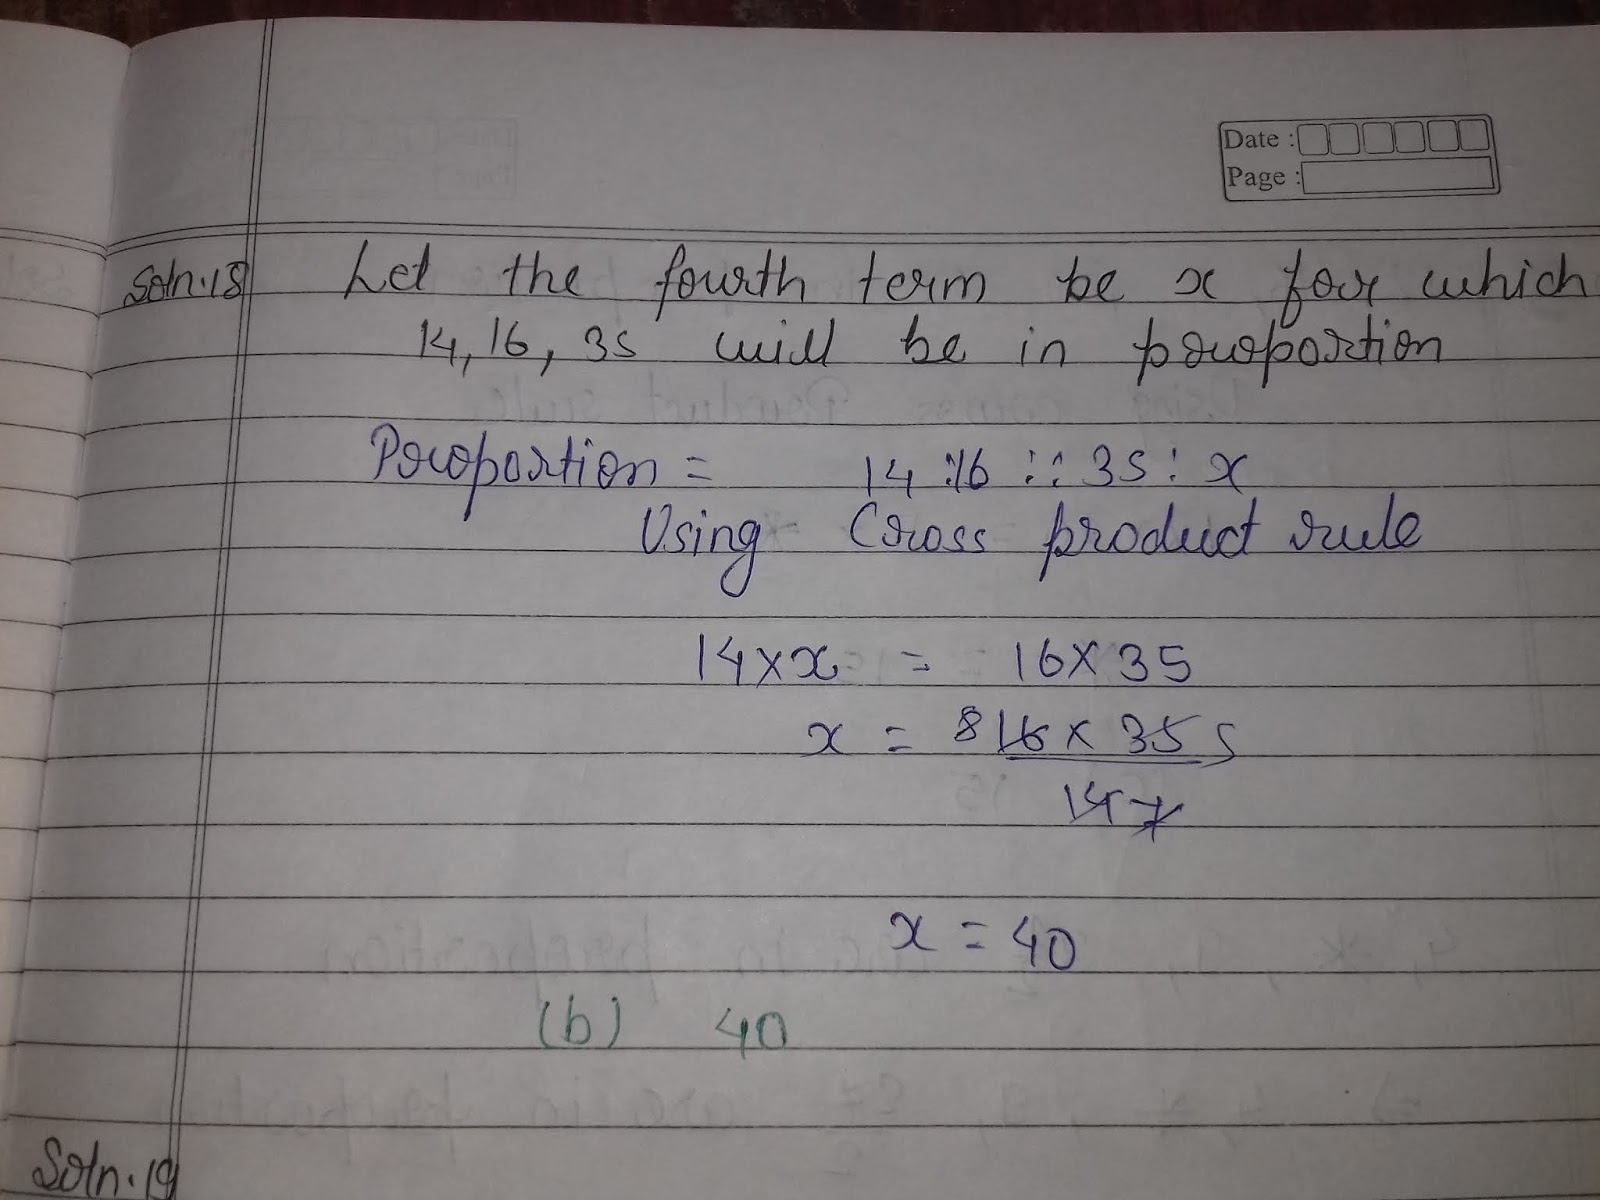 Date :
Page :
Soln.18 Let the fourth term be x for which
14, 16, 35 will be in proportion
Proportion = 14 : 16 :: 35 : x
Using Cross product rule
14 × x = 16 × 35
x = 8 16 × 35 5
14 7
x = 40
(b) 40
Soln.19